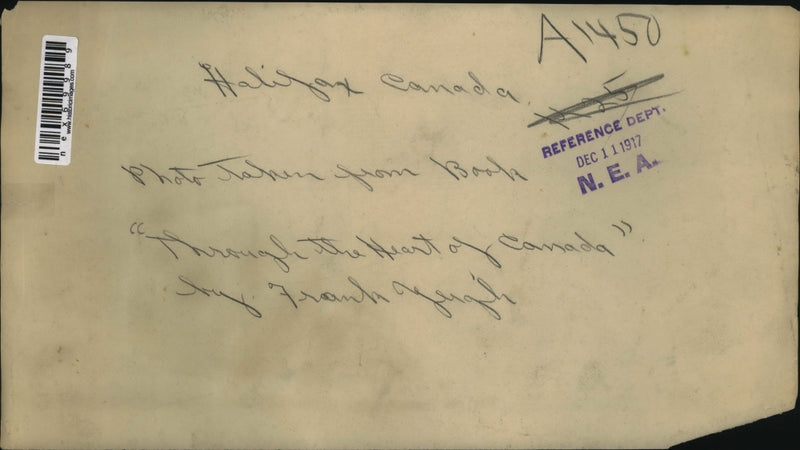 A1450
Halifax Canada.
REFERENCE DEPT.
DEC 11 1917
N. E. A.
Photo taken from Book
"Through the Heart of Canada"
by Frank Yeigh
nexb9989
www.historicimages.com